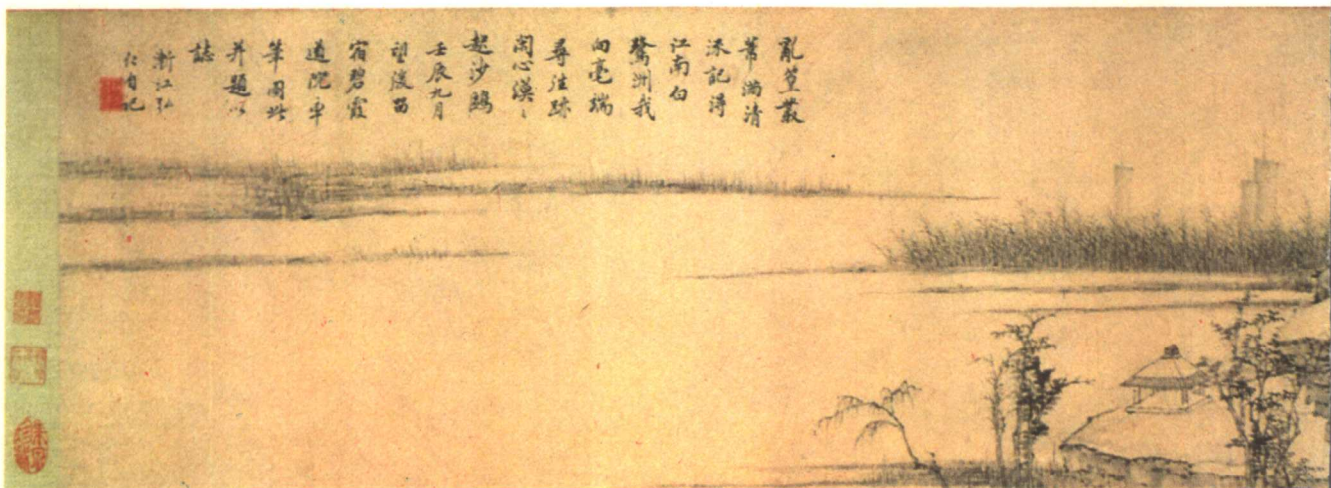 亂篁叢
葦滿清
流記得
江南白
鷺洲我
向毫端
尋往跡
閒心漠〻
起沙鷗
壬辰九月
望後留
宿碧霞
道院率
筆圖此
并題以
誌
漸江弘
仁自記